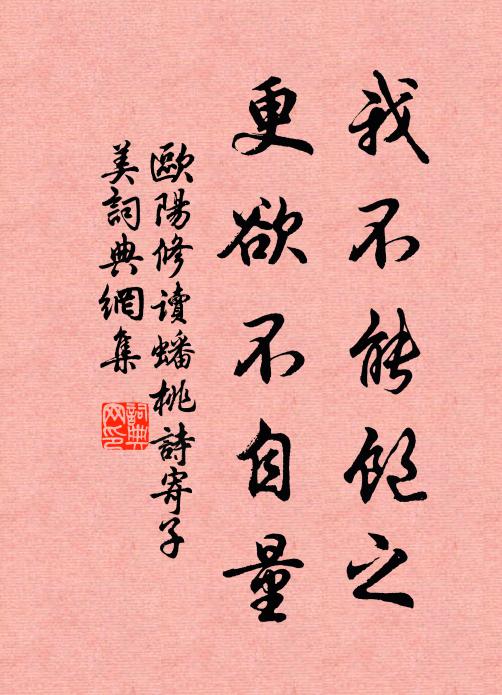 我不能飽之
更欲不自量
歐陽修讀蟠桃詩寄子
美詞典網集
詞典网印